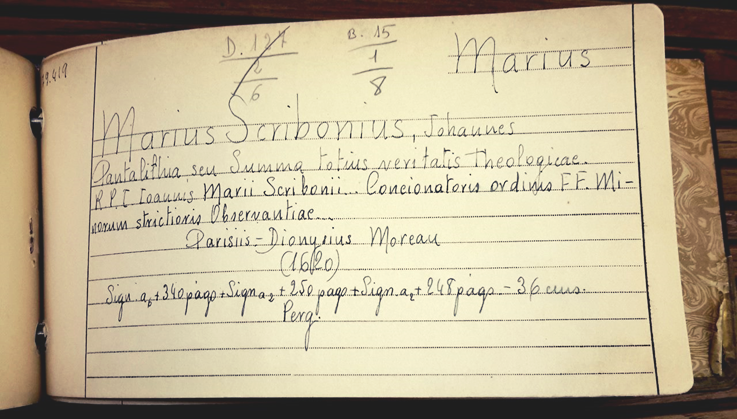 29.419
D. 127 B. 15
2 1
6 8
Marius
Marius Scribonius, Johannes
Pantalithia seu Summa totius veritatis Theologicae.
R. P. F. Ioannis Marii Scribonii... Concionatoris ordinis F.F. Mi-
norum strictioris Observantiae...
Parisiis - Dionysius Moreau
(1620)
Sign. a6 + 340 págs + Sign a2 + 250 págs + Sign. a2 + 248 págs - 36 cms.
Perg.